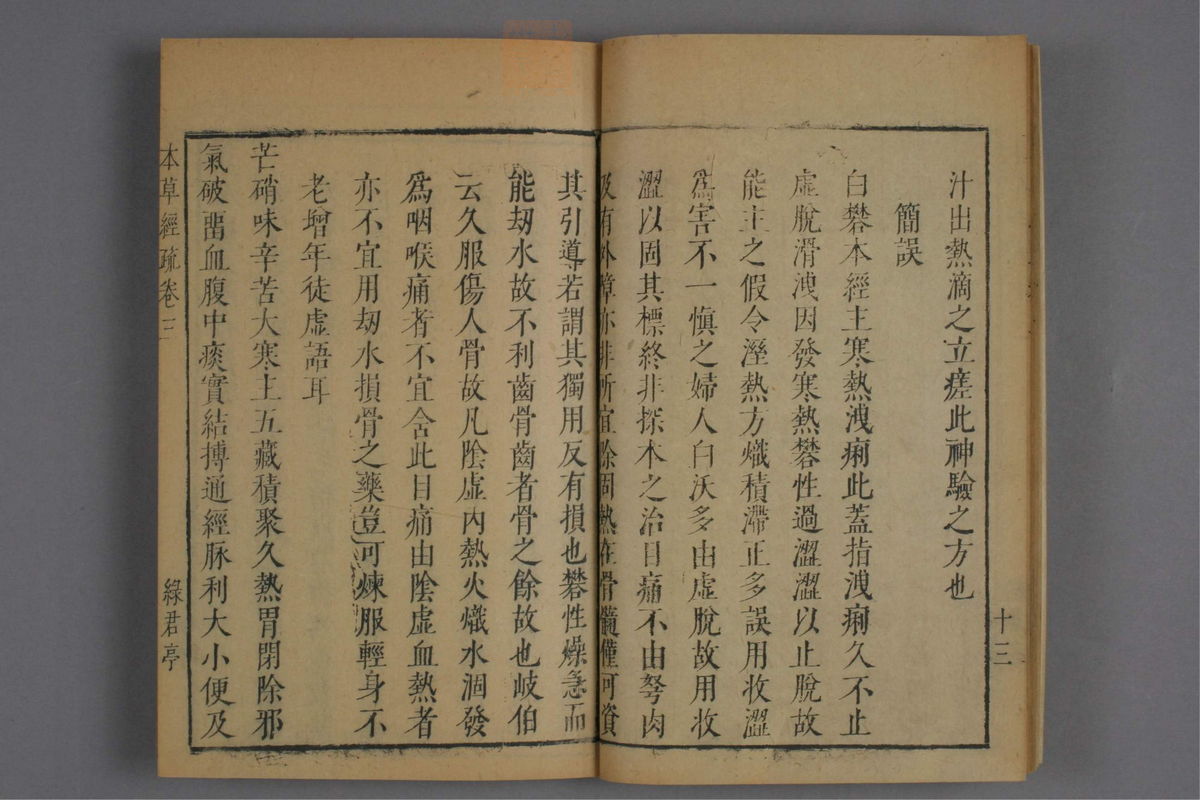 十三
汁出熱滴之立瘥此神驗之方也
簡誤
白礬本經主寒熱洩痢此蓋指洩痢久不止
虛脫滑洩因發寒熱礬性過澀澀以止脫故
能主之假令溼熱方熾積滯正多誤用收澀
爲害不一愼之婦人白沃多由虛脫故用收
澀以固其標終非探本之治目痛不由胬肉
及有外障亦非所宜除固熱在骨髓僅可資
其引導若謂其獨用反有損也礬性燥急而
能劫水故不利齒骨齒者骨之餘故也岐伯
云久服傷人骨故凡陰虛內熱火熾水涸發
爲咽喉痛者不宜含此目痛由陰虛血熱者
亦不宜用劫水損骨之藥豈可煉服輕身不
老增年徒虛語耳
芒硝味辛苦大寒主五藏積聚久熱胃閉除邪
氣破畱血腹中痰實結搏通經脉利大小便及
本草經疏卷三
綠君亭